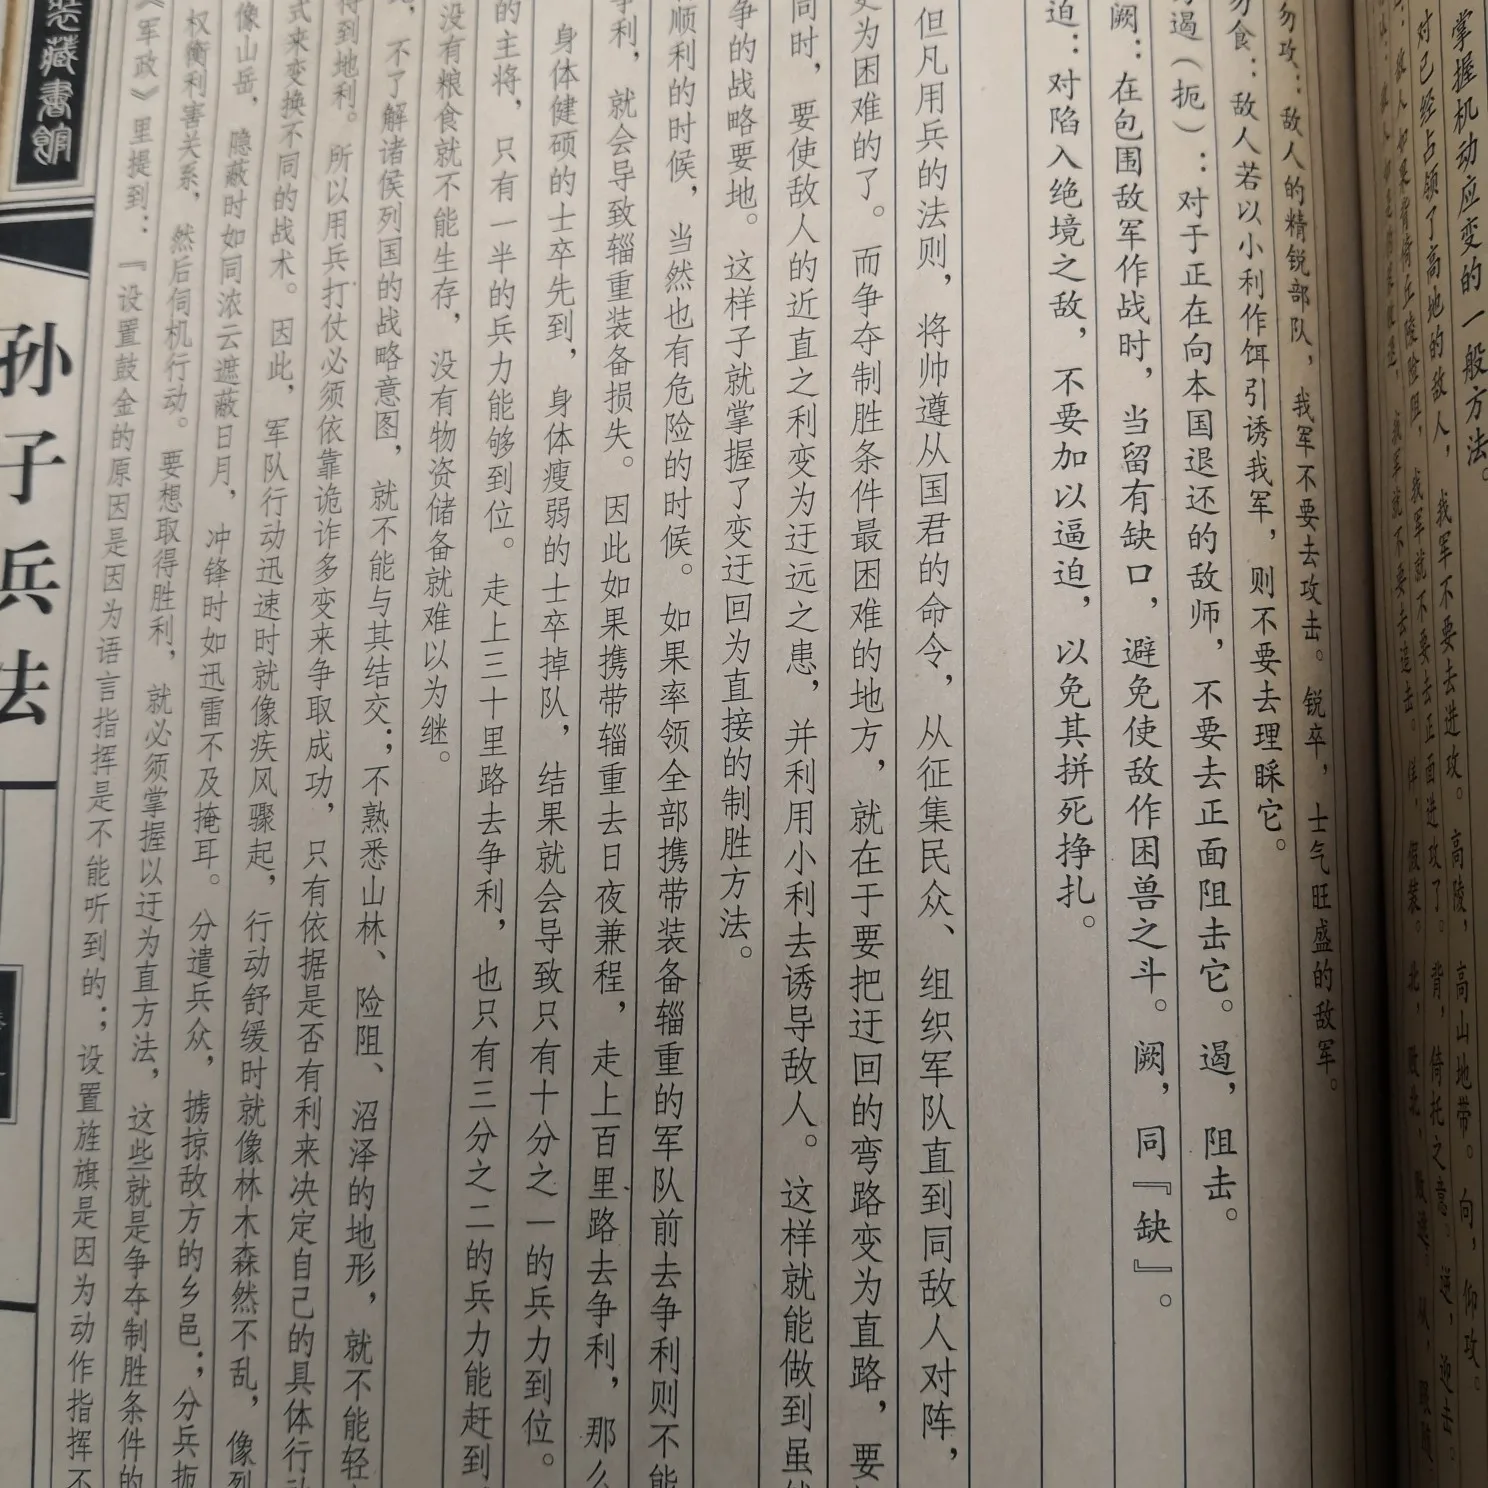 掌握机动应变的一般方法。
对已经占领了高地的敌人，我军不要去进攻。高陵，高山地带。向，仰攻。
敌人如果背倚丘陵险阻，我军就不要去正面进攻了。背，倚托之意。逆，迎击。
我军就不要去追击。佯，假装。北，败北，败退。从，跟随
勿攻：敌人的精锐部队，我军不要去攻击。锐卒，士气旺盛的敌军。
勿食：敌人若以小利作饵引诱我军，则不要去理睬它。
遏（扼）：对于正在向本国退还的敌师，不要去正面阻击它。遏，阻击。
阙：在包围敌军作战时，当留有缺口，避免使敌作困兽之斗。阙，同『缺』。
迫：对陷入绝境之敌，不要加以逼迫，以免其拼死挣扎。
但凡用兵的法则，将帅遵从国君的命令，从征集民众、组织军队直到同敌人对阵，
更为困难的了。而争夺制胜条件最困难的地方，就在于要把迂回的弯路变为直路，要
同时，要使敌人的近直之利变为迂远之患，并利用小利去诱导敌人。这样就能做到虽
争的战略要地。这样子就掌握了变迂回为直接的制胜方法。
顺利的时候，当然也有危险的时候。如果率领全部携带装备辎重的军队前去争利则不能
争利，就会导致辎重装备损失。因此如果携带辎重去日夜兼程，走上百里路去争利，那么
身体健硕的士卒先到，身体瘦弱的士卒掉队，结果就会导致只有十分之一的兵力到位。
的主将，只有一半的兵力能够到位。走上三十里路去争利，也只有三分之二的兵力能赶到
没有粮食就不能生存，没有物资储备就难以为继。
不了解诸侯列国的战略意图，就不能与其结交；不熟悉山林、险阻、沼泽的地形，就不能轻
得到地利。所以用兵打仗必须依靠诡诈多变来争取成功，只有依据是否有利来决定自己的具体行动
式来变换不同的战术。因此，军队行动迅速时就像疾风骤起，行动舒缓时就像林木森然不乱，像列
像山岳，隐蔽时如同浓云遮蔽日月，冲锋时如迅雷不及掩耳。分遣兵众，掳掠敌方的乡邑；分兵扼
权衡利害关系，然后伺机行动。要想取得胜利，就必须掌握以迂为直方法，这些就是争夺制胜条件的
《军政》里提到：『设置鼓金的原因是因为语言指挥是不能听到的；设置旌旗是因为动作指挥不
藏书馆
孙子兵法